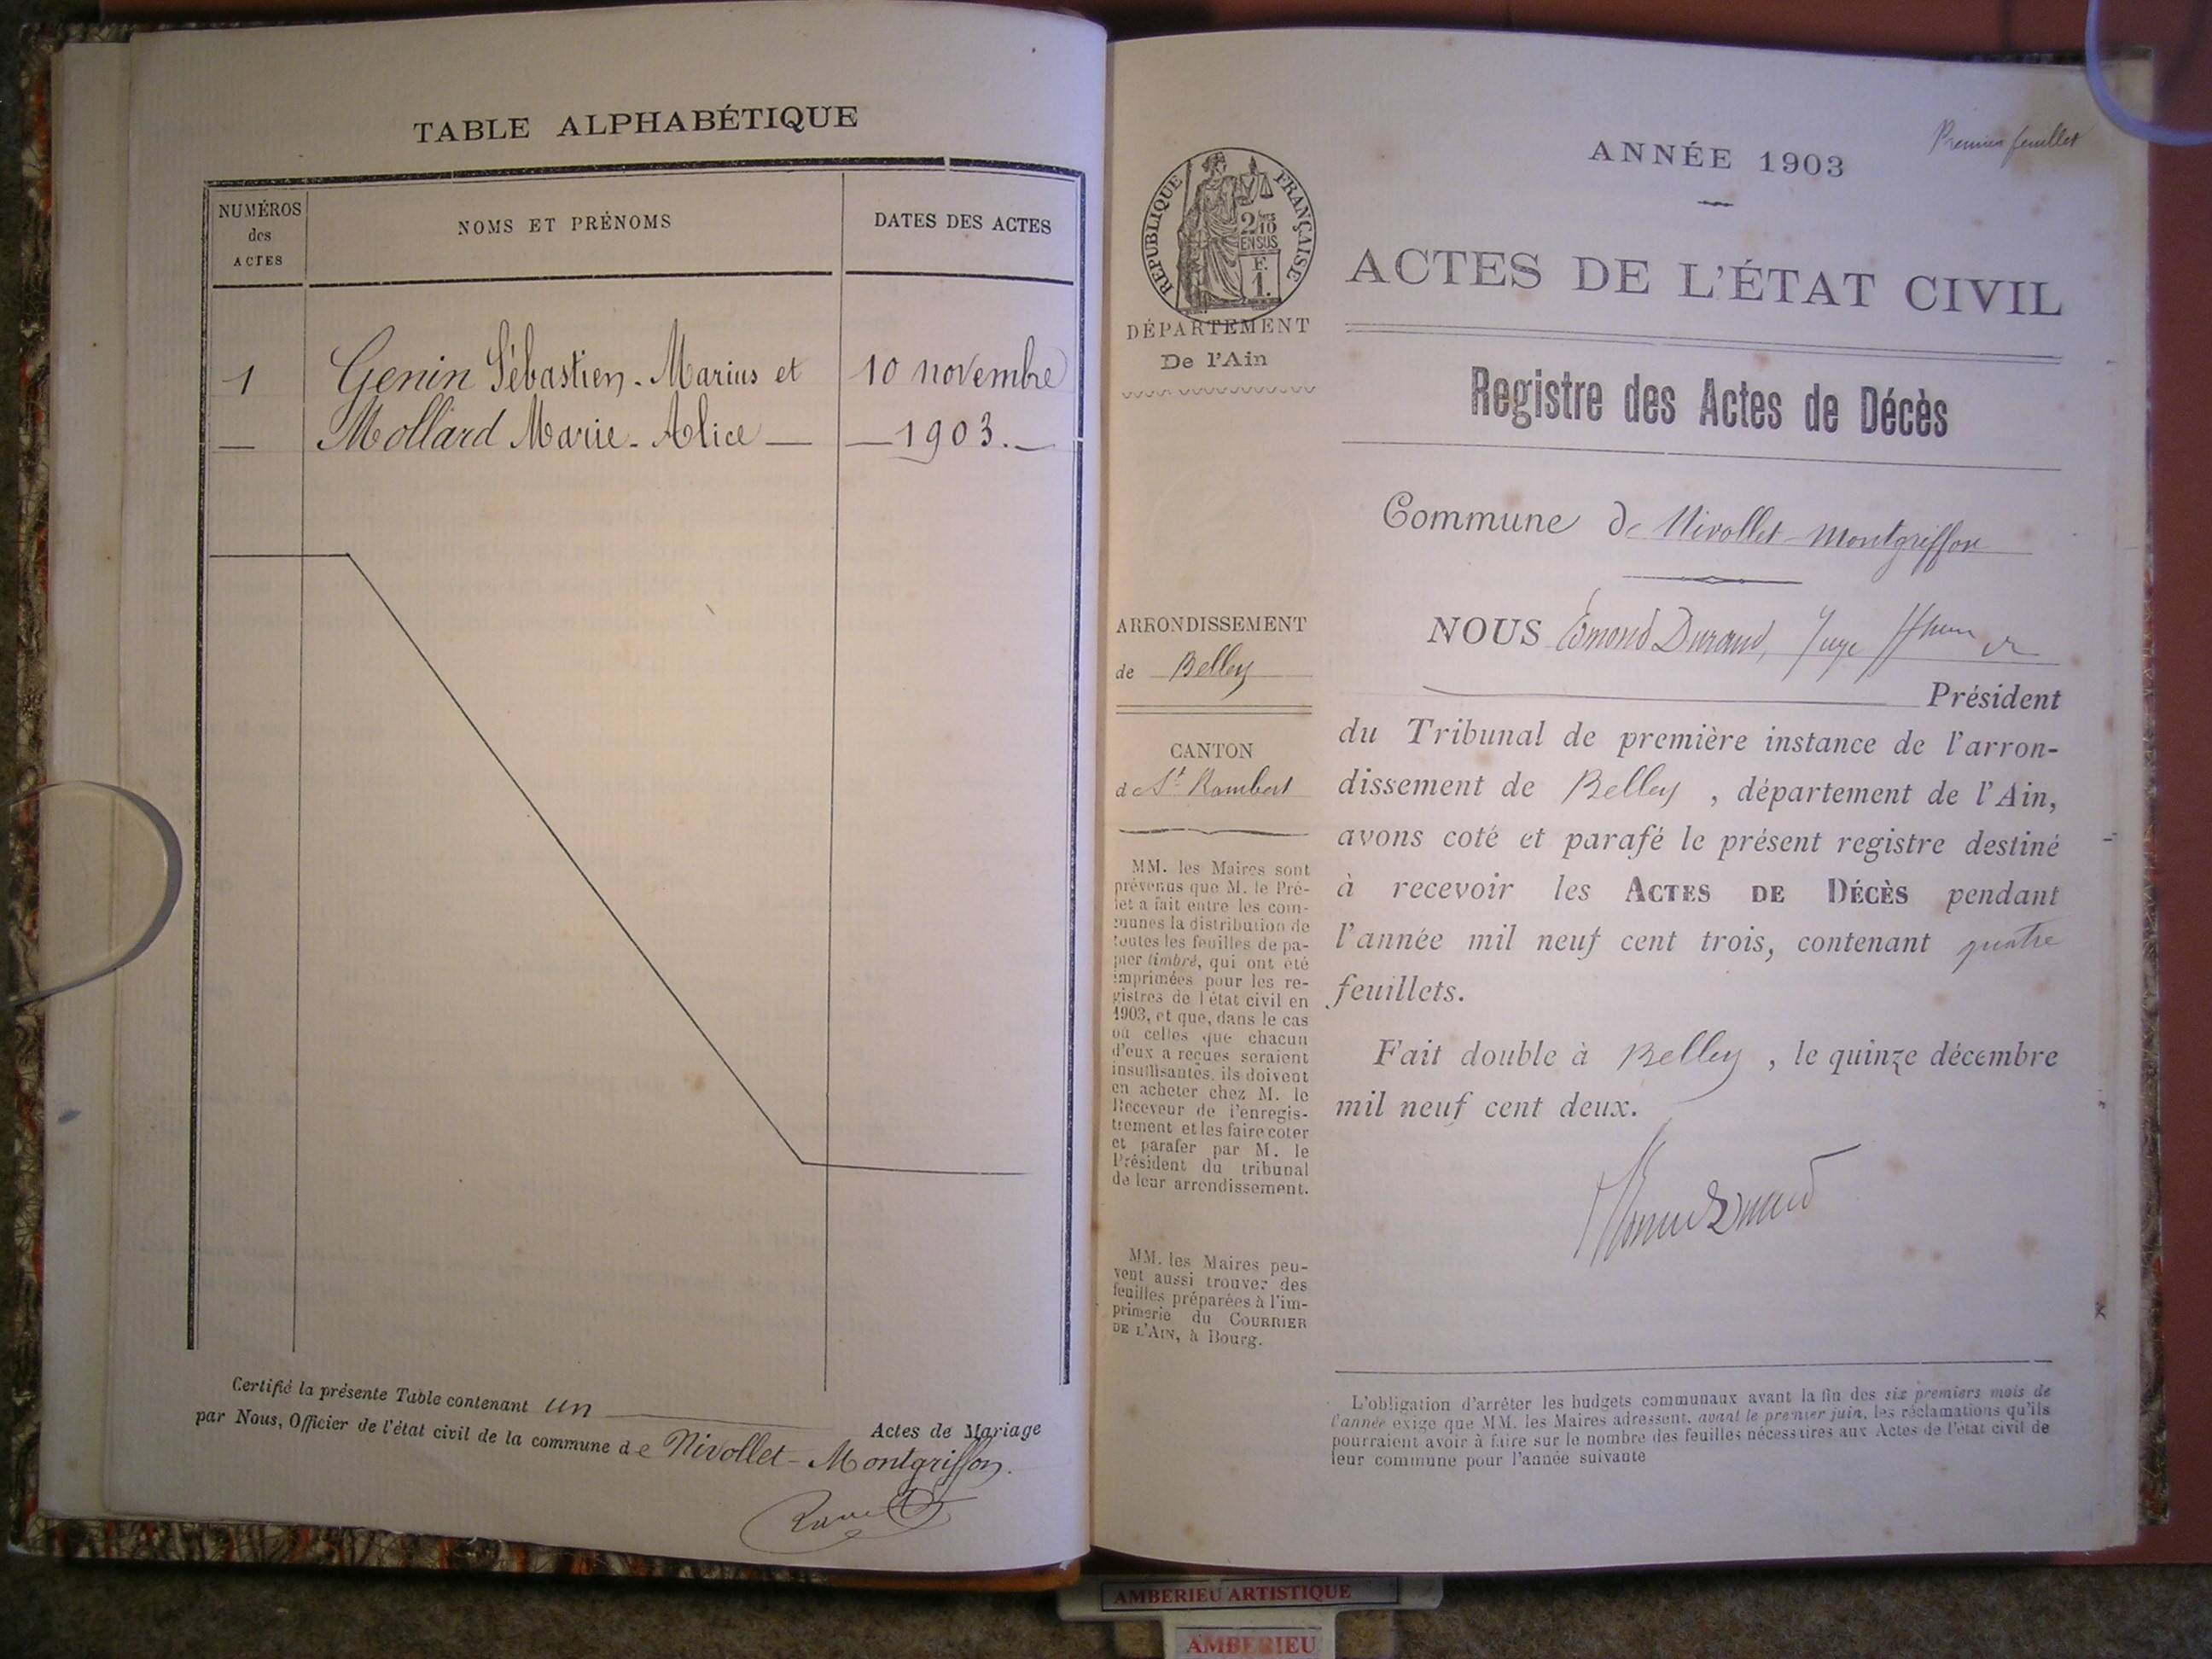 TABLE ALPHABÉTIQUE
NUMÉROS
des
ACTES
NOMS ET PRÉNOMS
DATES DES ACTES
1 Genin Sébastien - Marius et 10 novembre
— Mollard Marie - Alice — — 1903. —
Certifié la présente Table contenant un Actes de Mariage
par Nous, Officier de l'état civil de la commune de Nivollet - Montgriffon.
Premier feuillet
ANNÉE 1903
RÉPUBLIQUE FRANÇAISE
2/10
EN SUS
F.
1.
DÉPARTEMENT
De l'Ain
ARRONDISSEMENT
de Belley
CANTON
de St Rambert
MM. les Maires sont
prévenus que M. le Pré-
fet a fait entre les com-
munes la distribution de
toutes les feuilles de pa-
pier timbré, qui ont été
imprimées pour les re-
gistres de l'état civil en
1903, et que, dans le cas
où celles que chacun
d'eux a reçues seraient
insuffisantes, ils doivent
en acheter chez M. le
Receveur de l'enregis-
trement et les faire coter
et parafer par M. le
Président du tribunal
de leur arrondissement.
MM. les Maires peu-
vent aussi trouver des
feuilles préparées à l'im-
primerie du COURRIER
DE L'AIN, à Bourg.
ACTES DE L'ÉTAT CIVIL
Registre des Actes de Décès
Commune de Nivollet-Montgriffon
NOUS Edmond Durand, Juge
Président
du Tribunal de première instance de l'arron-
dissement de Belley , département de l'Ain,
avons coté et parafé le présent registre destiné
à recevoir les ACTES DE DÉCÈS pendant
l'année mil neuf cent trois, contenant quatre
feuillets.
Fait double à Belley , le quinze décembre
mil neuf cent deux.
L'obligation d'arrêter les budgets communaux avant la fin des six premiers mois de
l'année exige que MM. les Maires adressent, avant le premier juin, les réclamations qu'ils
pourraient avoir à faire sur le nombre des feuilles nécessaires aux Actes de l'état civil de
leur commune pour l'année suivante
AMBERIEU ARTISTIQUE
AMBERIEU